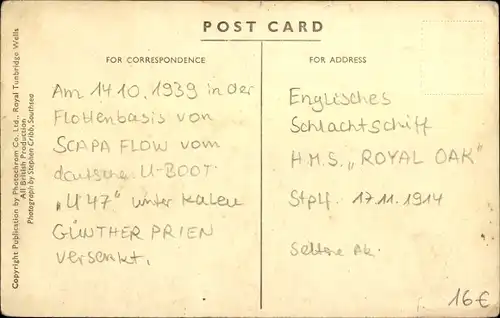 POST CARD
FOR CORRESPONDENCE
Am 14.10.1939 in der
Flottenbasis von
SCAPA FLOW vom
deutsche U-BOOT
"U 47" unter Kaleu
GÜNTHER PRIEN
versenkt.
FOR ADDRESS
Englisches
Schlachtschiff
H.M.S. „ROYAL OAK"
Stplf. 17.11.1914
Seltene Ak.
16€
Copyright Publication by Photochrom Co. Ltd., Royal Tunbridge Wells
All British Production
Photograph by Stephen Cribb, Southsea